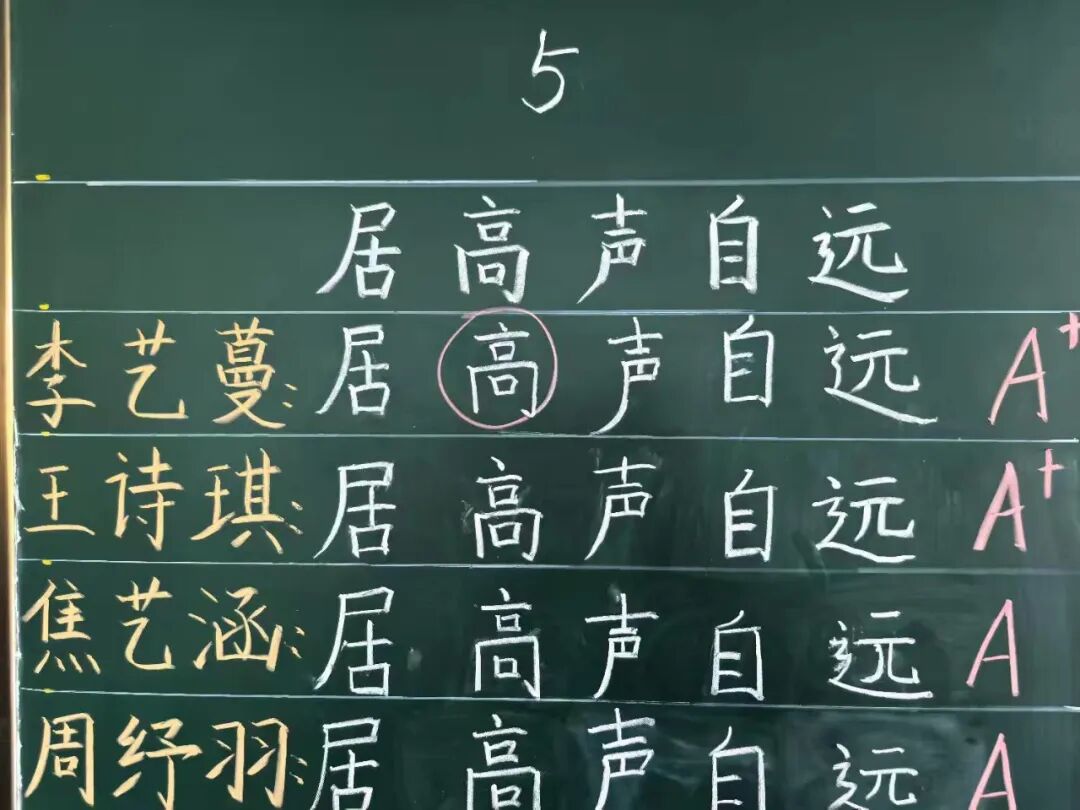 5
居高声自远
李艺蔓:居高声自远 A+
王诗琪:居高声自远 A+
焦艺涵:居高声自远 A
周纾羽:居高声自远 A